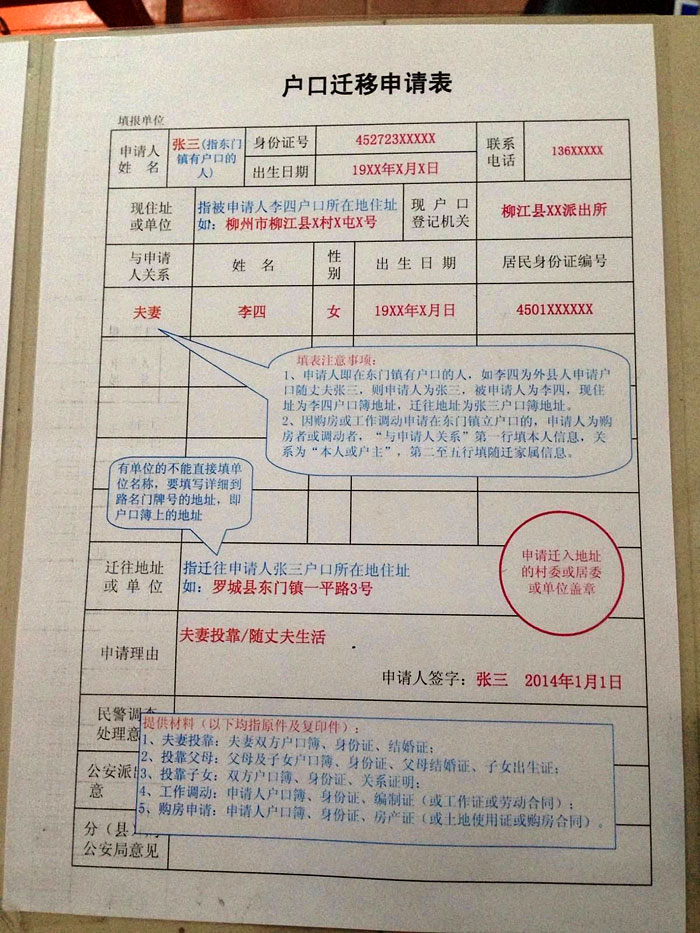 户口迁移申请表
填报单位
申请人
姓 名
张三(指东门
镇有户口的
人)
身份证号
452723XXXXX
出生日期
19XX年X月X日
联系
电话
136XXXXX
现住址
或单位
指被申请人李四户口所在地住址
如：柳州市柳江县X村X屯X号
现 户 口
登记机关
柳江县XX派出所
与申请
人关系
姓 名
性
别
出 生 日 期
居民身份证编号
夫妻
李四
女
19XX年X月日
4501XXXXXX
填表注意事项：
1、申请人即在东门镇有户口的人，如李四为外县人申请户
口随丈夫张三，则申请人为张三，被申请人为李四，现住
址为李四户口簿地址，迁往地址为张三户口簿地址。
2、因购房或工作调动申请在东门镇立户口的，申请人为购
房者或调动者，“与申请人关系”第一行填本人信息，关
系为“本人或户主”，第二至五行填随迁家属信息。
有单位的不能直接填单
位名称，要填写详细到
路名门牌号的地址，即
户口簿上的地址
迁往地址
或 单 位
指迁往申请人张三户口所在地住址
如：罗城县东门镇一平路3号
申请迁入地址
的村委或居委
或单位盖章
申请理由
夫妻投靠/随丈夫生活
申请人签字：张三 2014年1月1日
民警调查
处理意
提供材料（以下均指原件及复印件）：
1、夫妻投靠：夫妻双方户口簿、身份证、结婚证；
2、投靠父母：父母及子女户口簿、身份证、父母结婚证、子女出生证；
3、投靠子女：双方户口簿、身份证、关系证明；
4、工作调动：申请人户口簿、身份证、编制证（或工作证或劳动合同）；
5、购房申请：申请人户口簿、身份证、房产证（或土地使用证或购房合同）。
公安派出
意
分（县）局
公安局意见